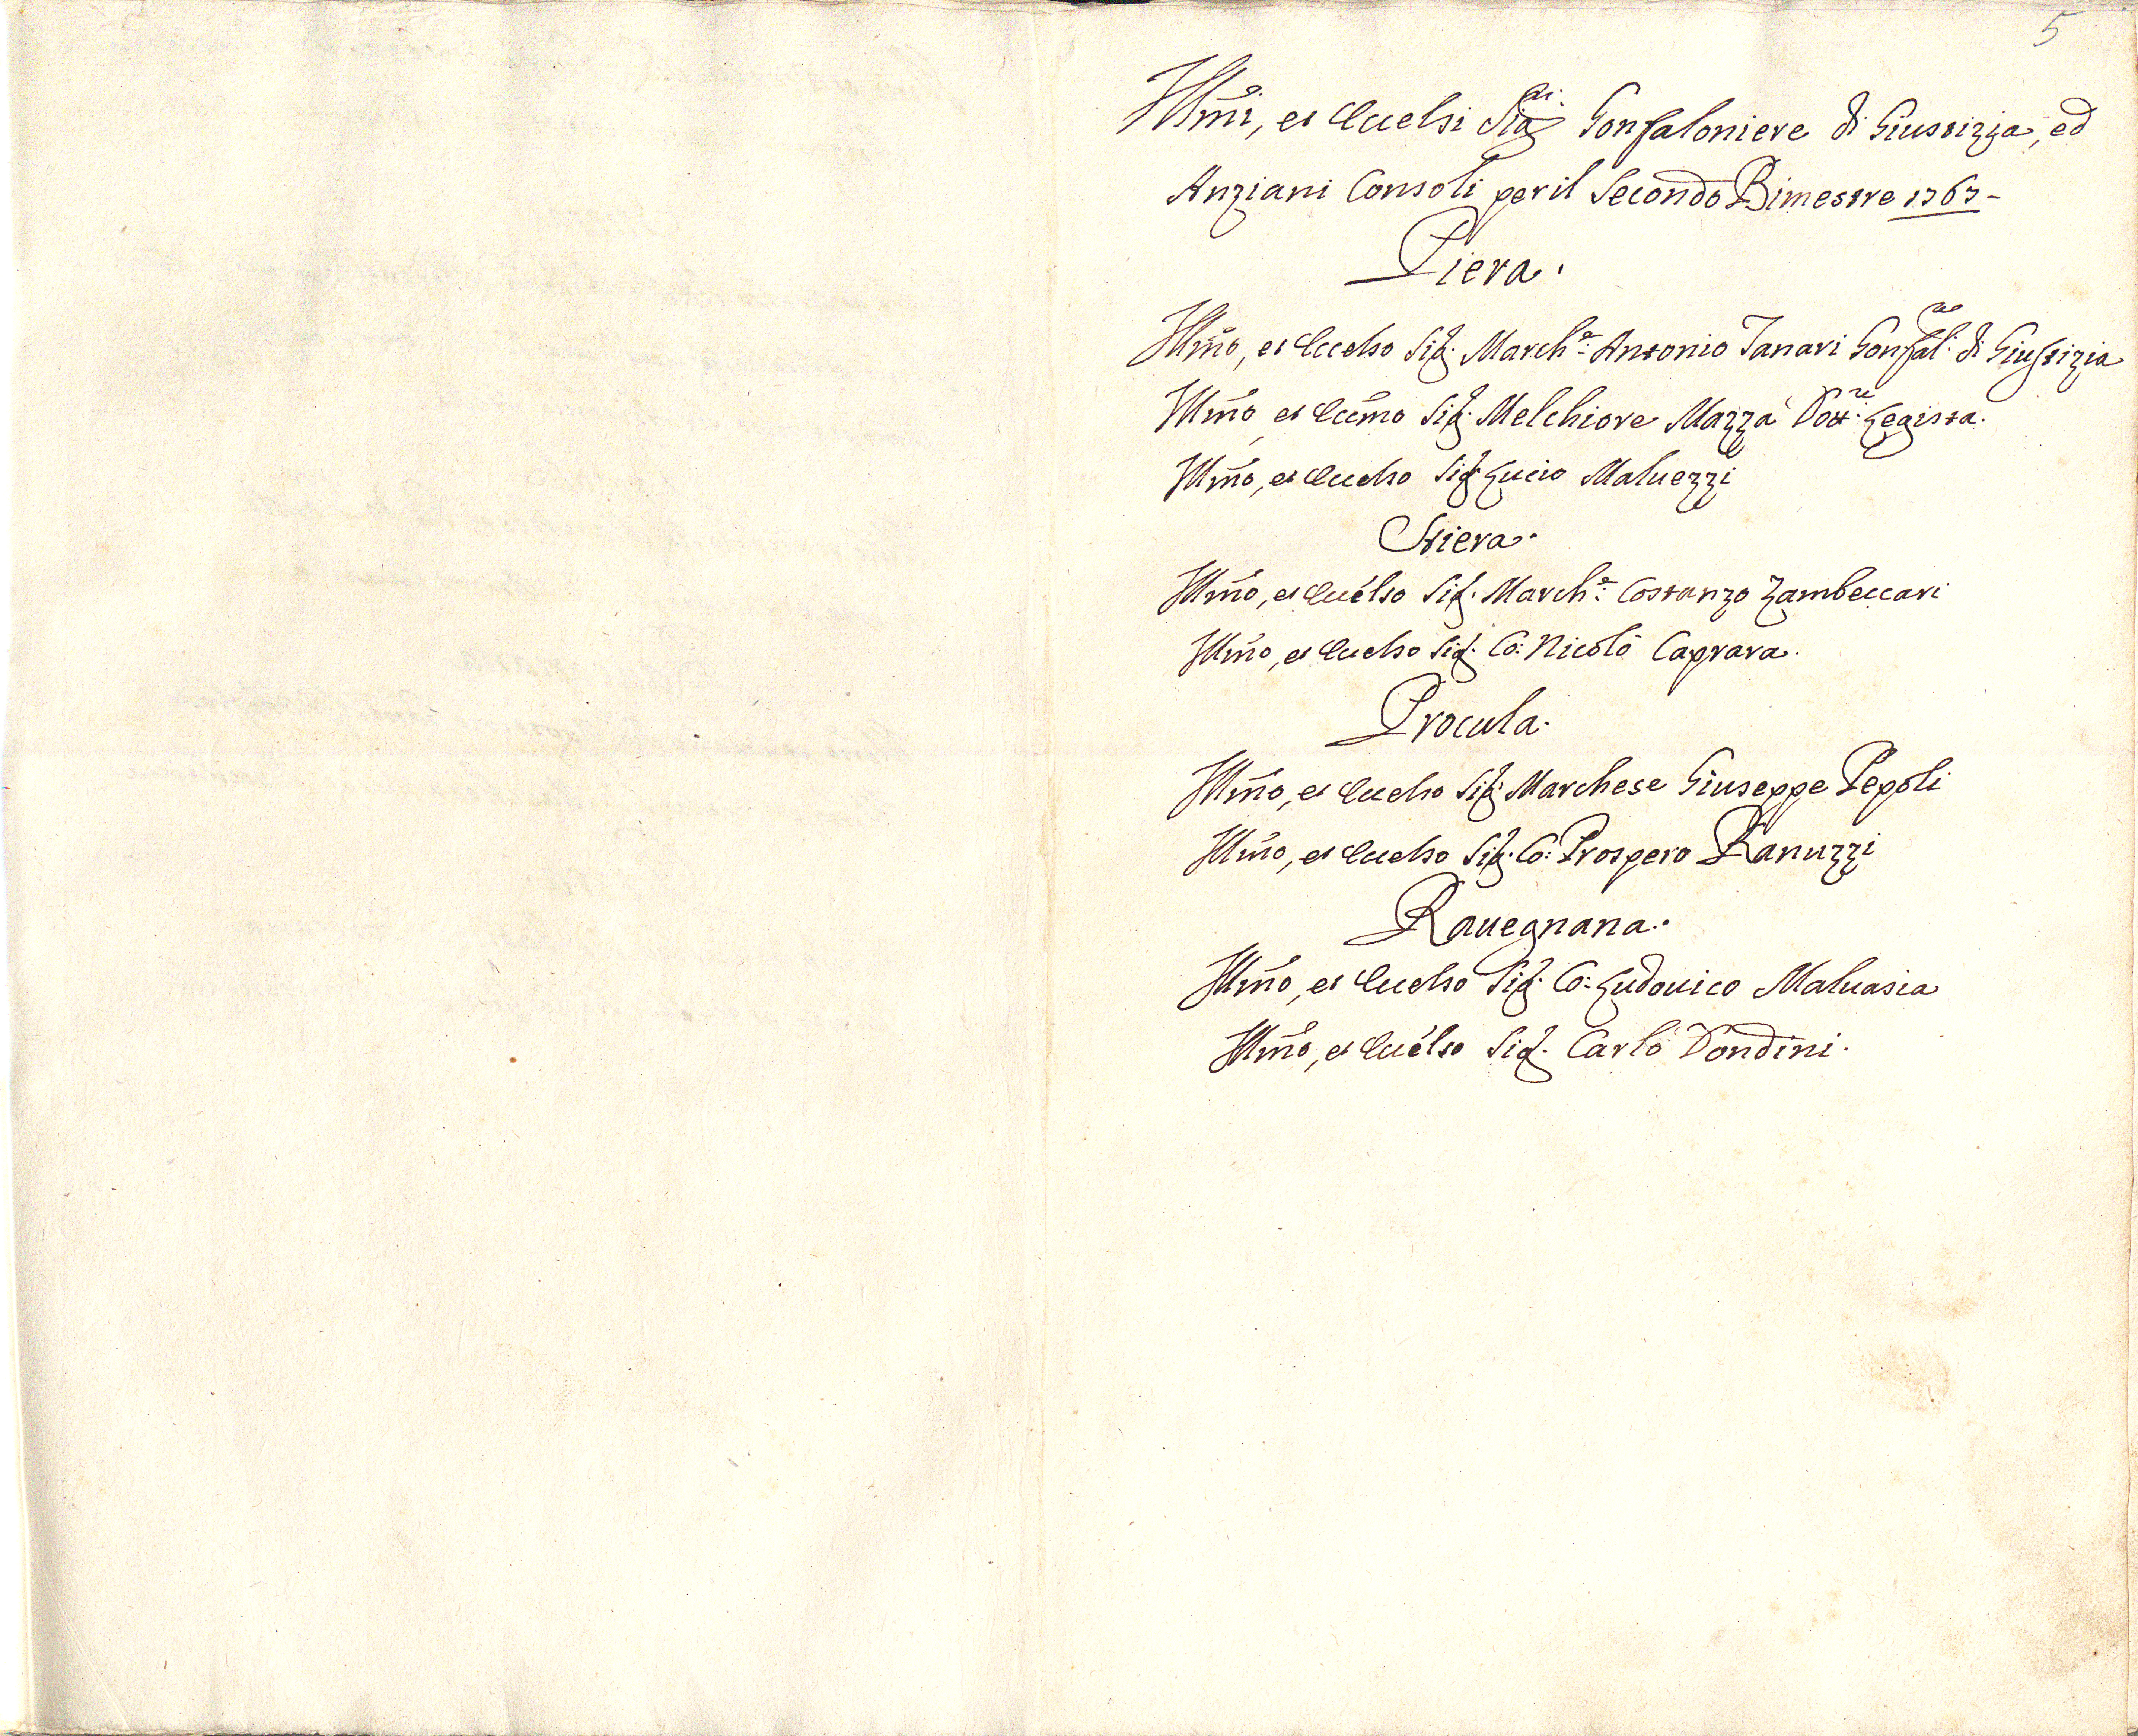 5
Illmi, et Eccelsi Sigri. Gonfaloniere di Giustizia, ed
Anziani Consoli per il Secondo Bimestre 1767 -
Piera.
Illmo, et Eccelso Sig. Marche. Antonio Tanari Gonfalre. di Giustizia
Illmo, et Eccmo Sig. Melchiore Mazza Dottre. Legista.
Illmo, et Eccelso Sig. Lucio Maluezzi
Stiera.
Illmo, et Eccelso Sig. Marche. Costanzo Zambeccari
Illmo, et Eccelso Sig. Co: Nicolò Caprara.
Procula.
Illmo, et Eccelso Sig. Marchese Giuseppe Pepoli
Illmo, et Eccelso Sig. Co: Prospero Ranuzzi
Rauegnana.
Illmo, et Eccelso Sig. Co: Ludouico Maluasia
Illmo, et Eccelso Sig. Carlo Dondini.